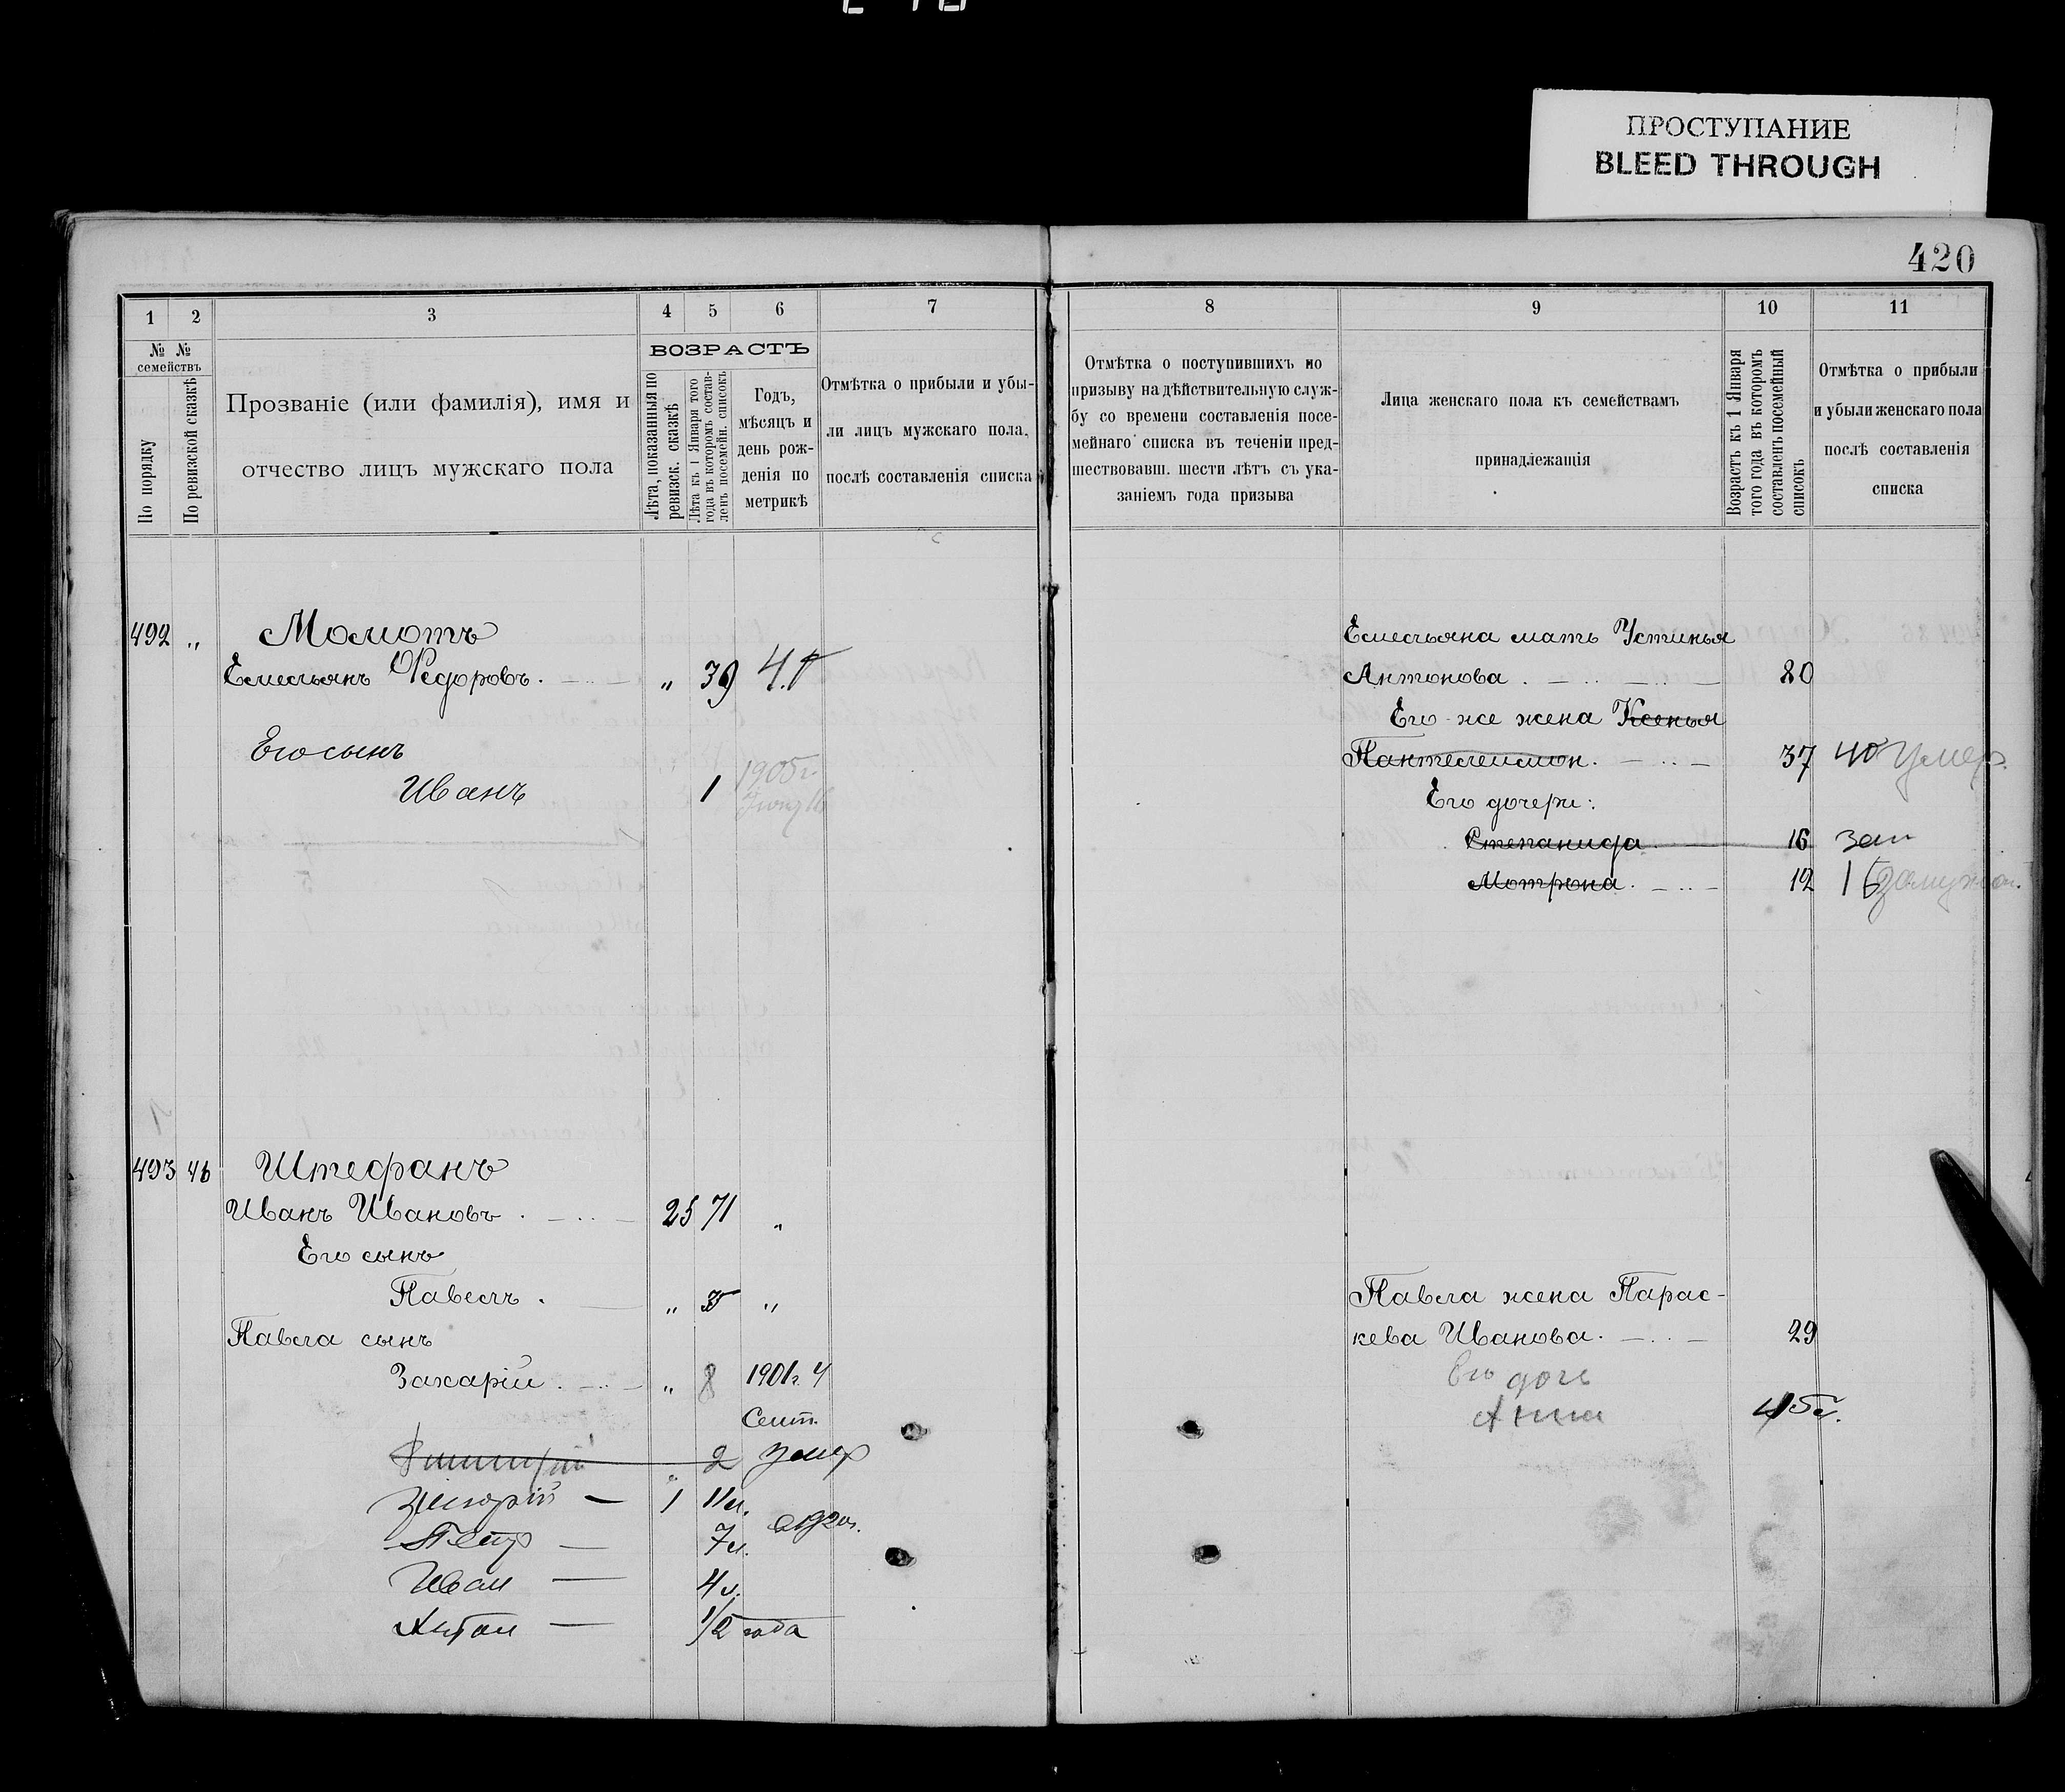 ПРОСТУПАНИЕ
BLEED THROUGH
420
1 2 3 4 5 6 7
№ № семействъ
По порядку
По ревизской сказкѣ
Прозваніе (или фамилія), имя и
отчество лицъ мужскаго пола
ВОЗРАСТЪ
Лѣта, показанныя по
ревизск. сказкѣ
Лѣта къ 1 Января того
года въ которомъ состав-
ленъ посемейн. списокъ
Годъ,
мѣсяцъ и
день рож-
денія по
метрикѣ
Отмѣтка о прибыли и убы-
ли лицъ мужскаго пола,
послѣ составленія списка
492 „ Момотъ
Емельянъ Ѳедоровъ. „ 39
Его сынъ
Иванъ 1 1905г.
493 46 Штефанъ
Иванъ Ивановъ . 25 71 „
Его сынъ
Павелъ . „ „
Павла сынъ
Захарій . „ 8 1901г. 4
Сент.
„ 2 умер
1 11м.
Петр — 7м.
Иван — 4м.
Антон — 1/2 года
8 9 10 11
Отмѣтка о поступившихъ по
призыву на дѣйствительную служ-
бу со времени составленія посе-
мейнаго списка въ теченіи пред-
шествовавш. шести лѣтъ съ ука-
заніемъ года призыва
Лица женскаго пола къ семействамъ
принадлежащія
Возрастъ къ 1 Января
того года въ которомъ
составленъ посемейный
списокъ
Отмѣтка о прибыли
и убыли женскаго пола
послѣ составленія
списка
Емельяна мать Устинья
Антонова . 80
Его-же жена Ксенья
Пантелеймон. 37 40 умер.
Его дочери:
Степанида 16 зам
Мотрона. 12 16 замужем.
Павла жена Парас-
кева Иванова. 29
Его дочь
Анна